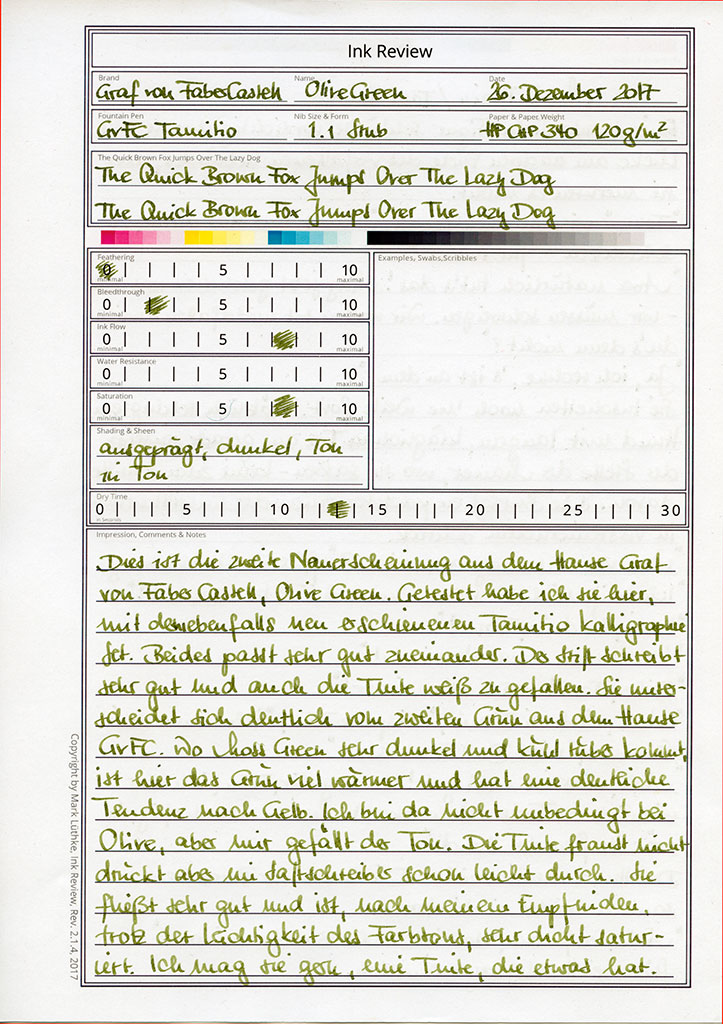 Ink Review
Brand Name Date
Graf von FaberCastell OliveGreen 26. Dezember 2017
Fountain Pen Nib Size & Form Paper & Paper Weight
GvFC Tamitio 1.1 Stub HP CHP340 120g/m²
The Quick Brown Fox Jumps Over The Lazy Dog
The Quick Brown Fox Jumps Over The Lazy Dog
The Quick Brown Fox Jumps Over The Lazy Dog
Feathering Examples, Swabs,Scribbles
0 5 10
minimal maximal
Bleedthrough
0 5 10
minimal maximal
Ink Flow
0 5 10
minimal maximal
Water Resistance
0 5 10
minimal maximal
Saturation
0 5 10
minimal maximal
Shading & Sheen
ausgeprägt, dunkel, Ton
in Ton
Dry Time
0 5 10 15 20 25 30
in Seconds
Impression, Comments & Notes
Dies ist die zweite Neuerscheinung aus dem Hause Graf
von Faber Castell, Olive Green. Getestet habe ich sie hier,
mit dem ebenfalls neu erschienenen Tamitio Kalligraphie
Set. Beides passt sehr gut zueinander. Der Stift schreibt
sehr gut und auch die Tinte weiß zu gefallen. Sie unter-
scheidet sich deutlich vom zweiten Grün aus dem Hause
GvFC. Wo Moss Green sehr dunkel und kühl rüber kommt,
ist hier das Grün viel wärmer und hat eine deutliche
Tendenz nach Gelb. Ich bin da nicht unbedingt bei
Olive, aber mir gefällt der Ton. Die Tinte franst nicht
drückt aber im Saftschreiber schon leicht durch. Sie
fließt sehr gut und ist, nach meinem Empfinden,
trotz der Leichtigkeit des Farbtons, sehr dicht satur-
iert. Ich mag sie gern, eine Tinte, die etwas hat.
Copyright by Mark Lüthke, Ink Review, Rev. 2.1.4, 2017